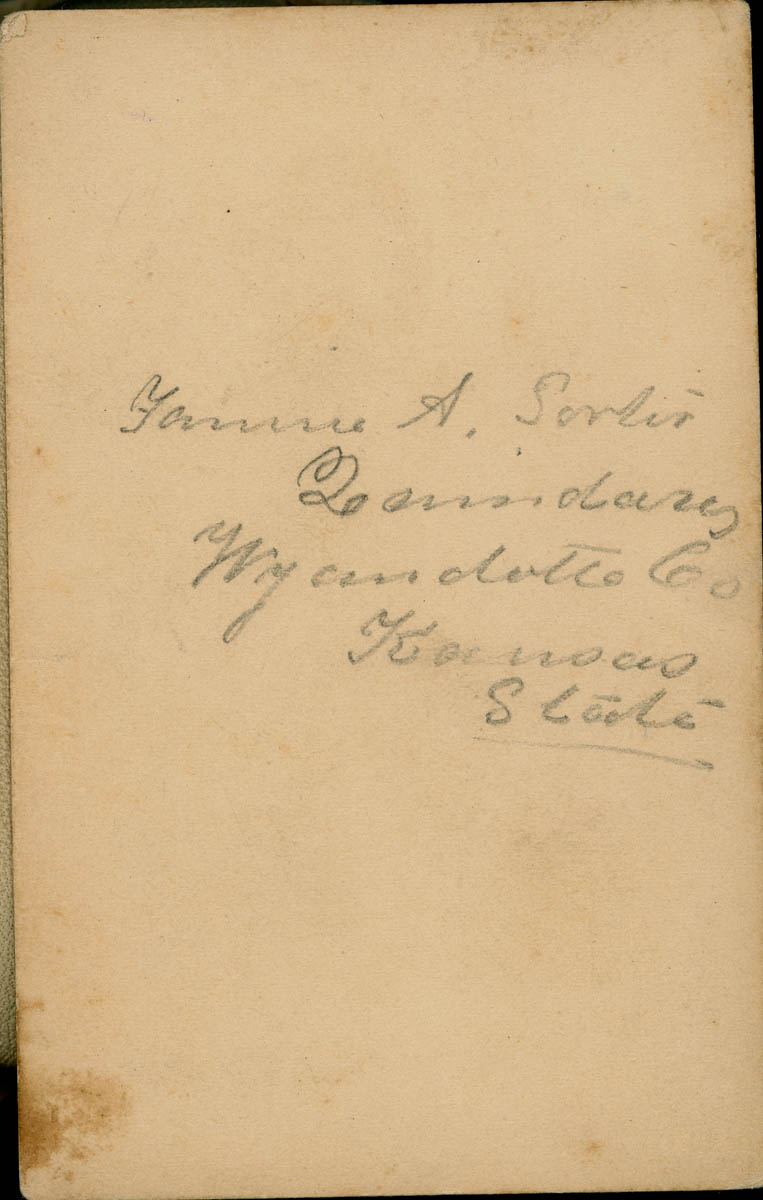 Fannie A. Sortir
Quindaro
Wyandotte Co
Kansas
State